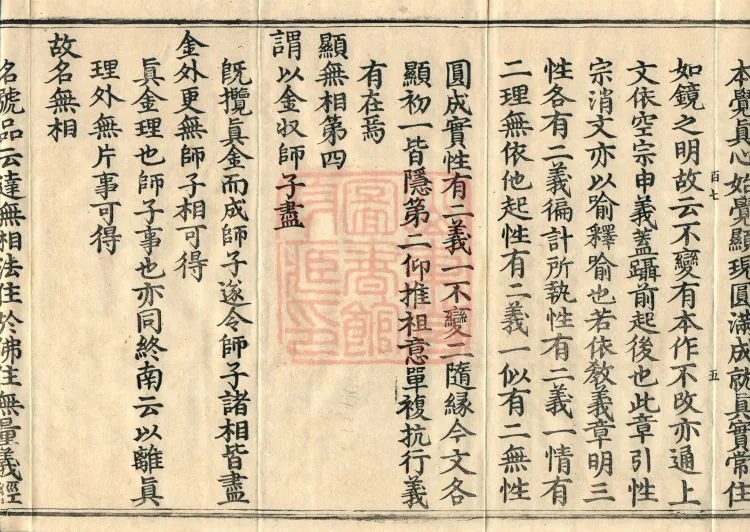 本覺真心始覺顯現圓滿成就真實常住
百七
五
如鏡之明故云不變有本作不改亦通上
文依空宗申義蓋躡前起後也此章引性
宗消文亦以喻釋喻也若依教義章明三
性各有二義徧計所執性有二義一情有
二理無依他起性有二義一似有二無性
圓成實性有二義一不變二隨緣今文各
顯初一皆隱第二仰推祖意單複抗行義
有在焉
顯無相第四
謂以金収師子盡
旣攬真金而成師子遂令師子諸相皆盡
金外更無師子相可得
真金理也師子事也亦同終南云以離真
理外無片事可得
故名無相
名號品云達無相法住於佛住無量義經